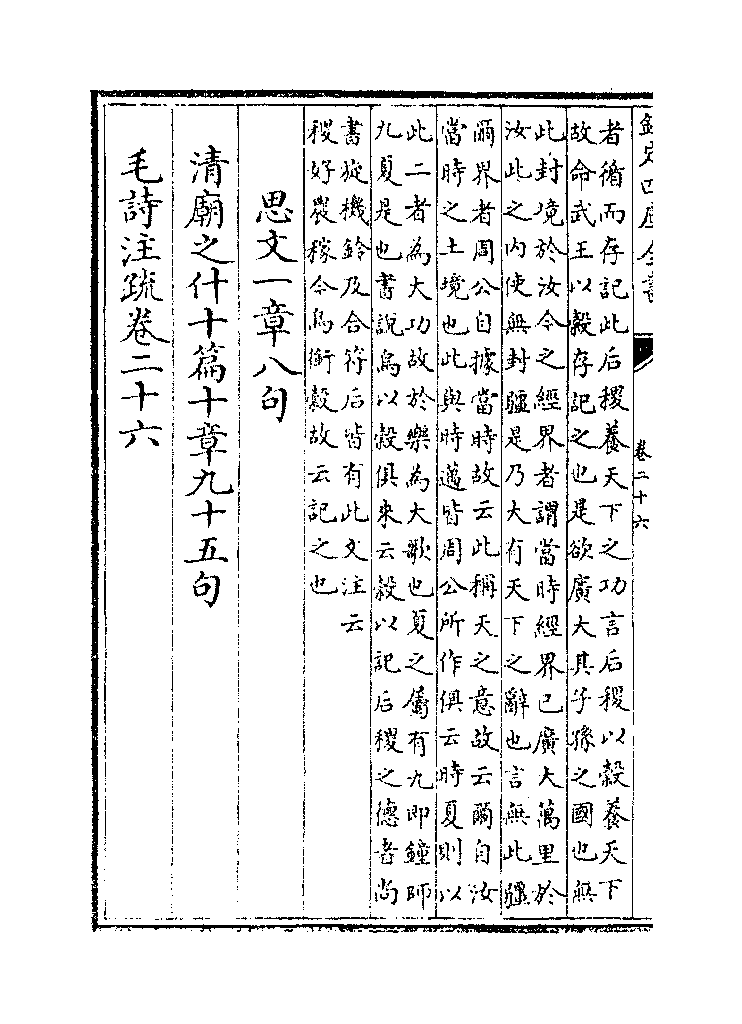 欽定四庫全書
卷二十六
者循而存記此后稷養天下之功言后稷以穀養天下
故命武王以穀存記之也是欲廣大其子孫之國也無
此封境於汝今之經界者謂當時經界已廣大萬里於
汝此之内使無封疆是乃大有天下之辭也言無此疆
爾界者周公自據當時故云此稱天之意故云爾自汝
當時之土境也此與時邁皆周公所作俱云時夏則以
此二者為大功故於樂為大歌也夏之屬有九即鐘師
九夏是也書說烏以穀俱來云穀以記后稷之德者尚
書旋機鈐及合符后皆有此文注云
稷好農稼今烏銜穀故云記之也
思文一章八句
清廟之什十篇十章九十五句
毛詩注疏卷二十六